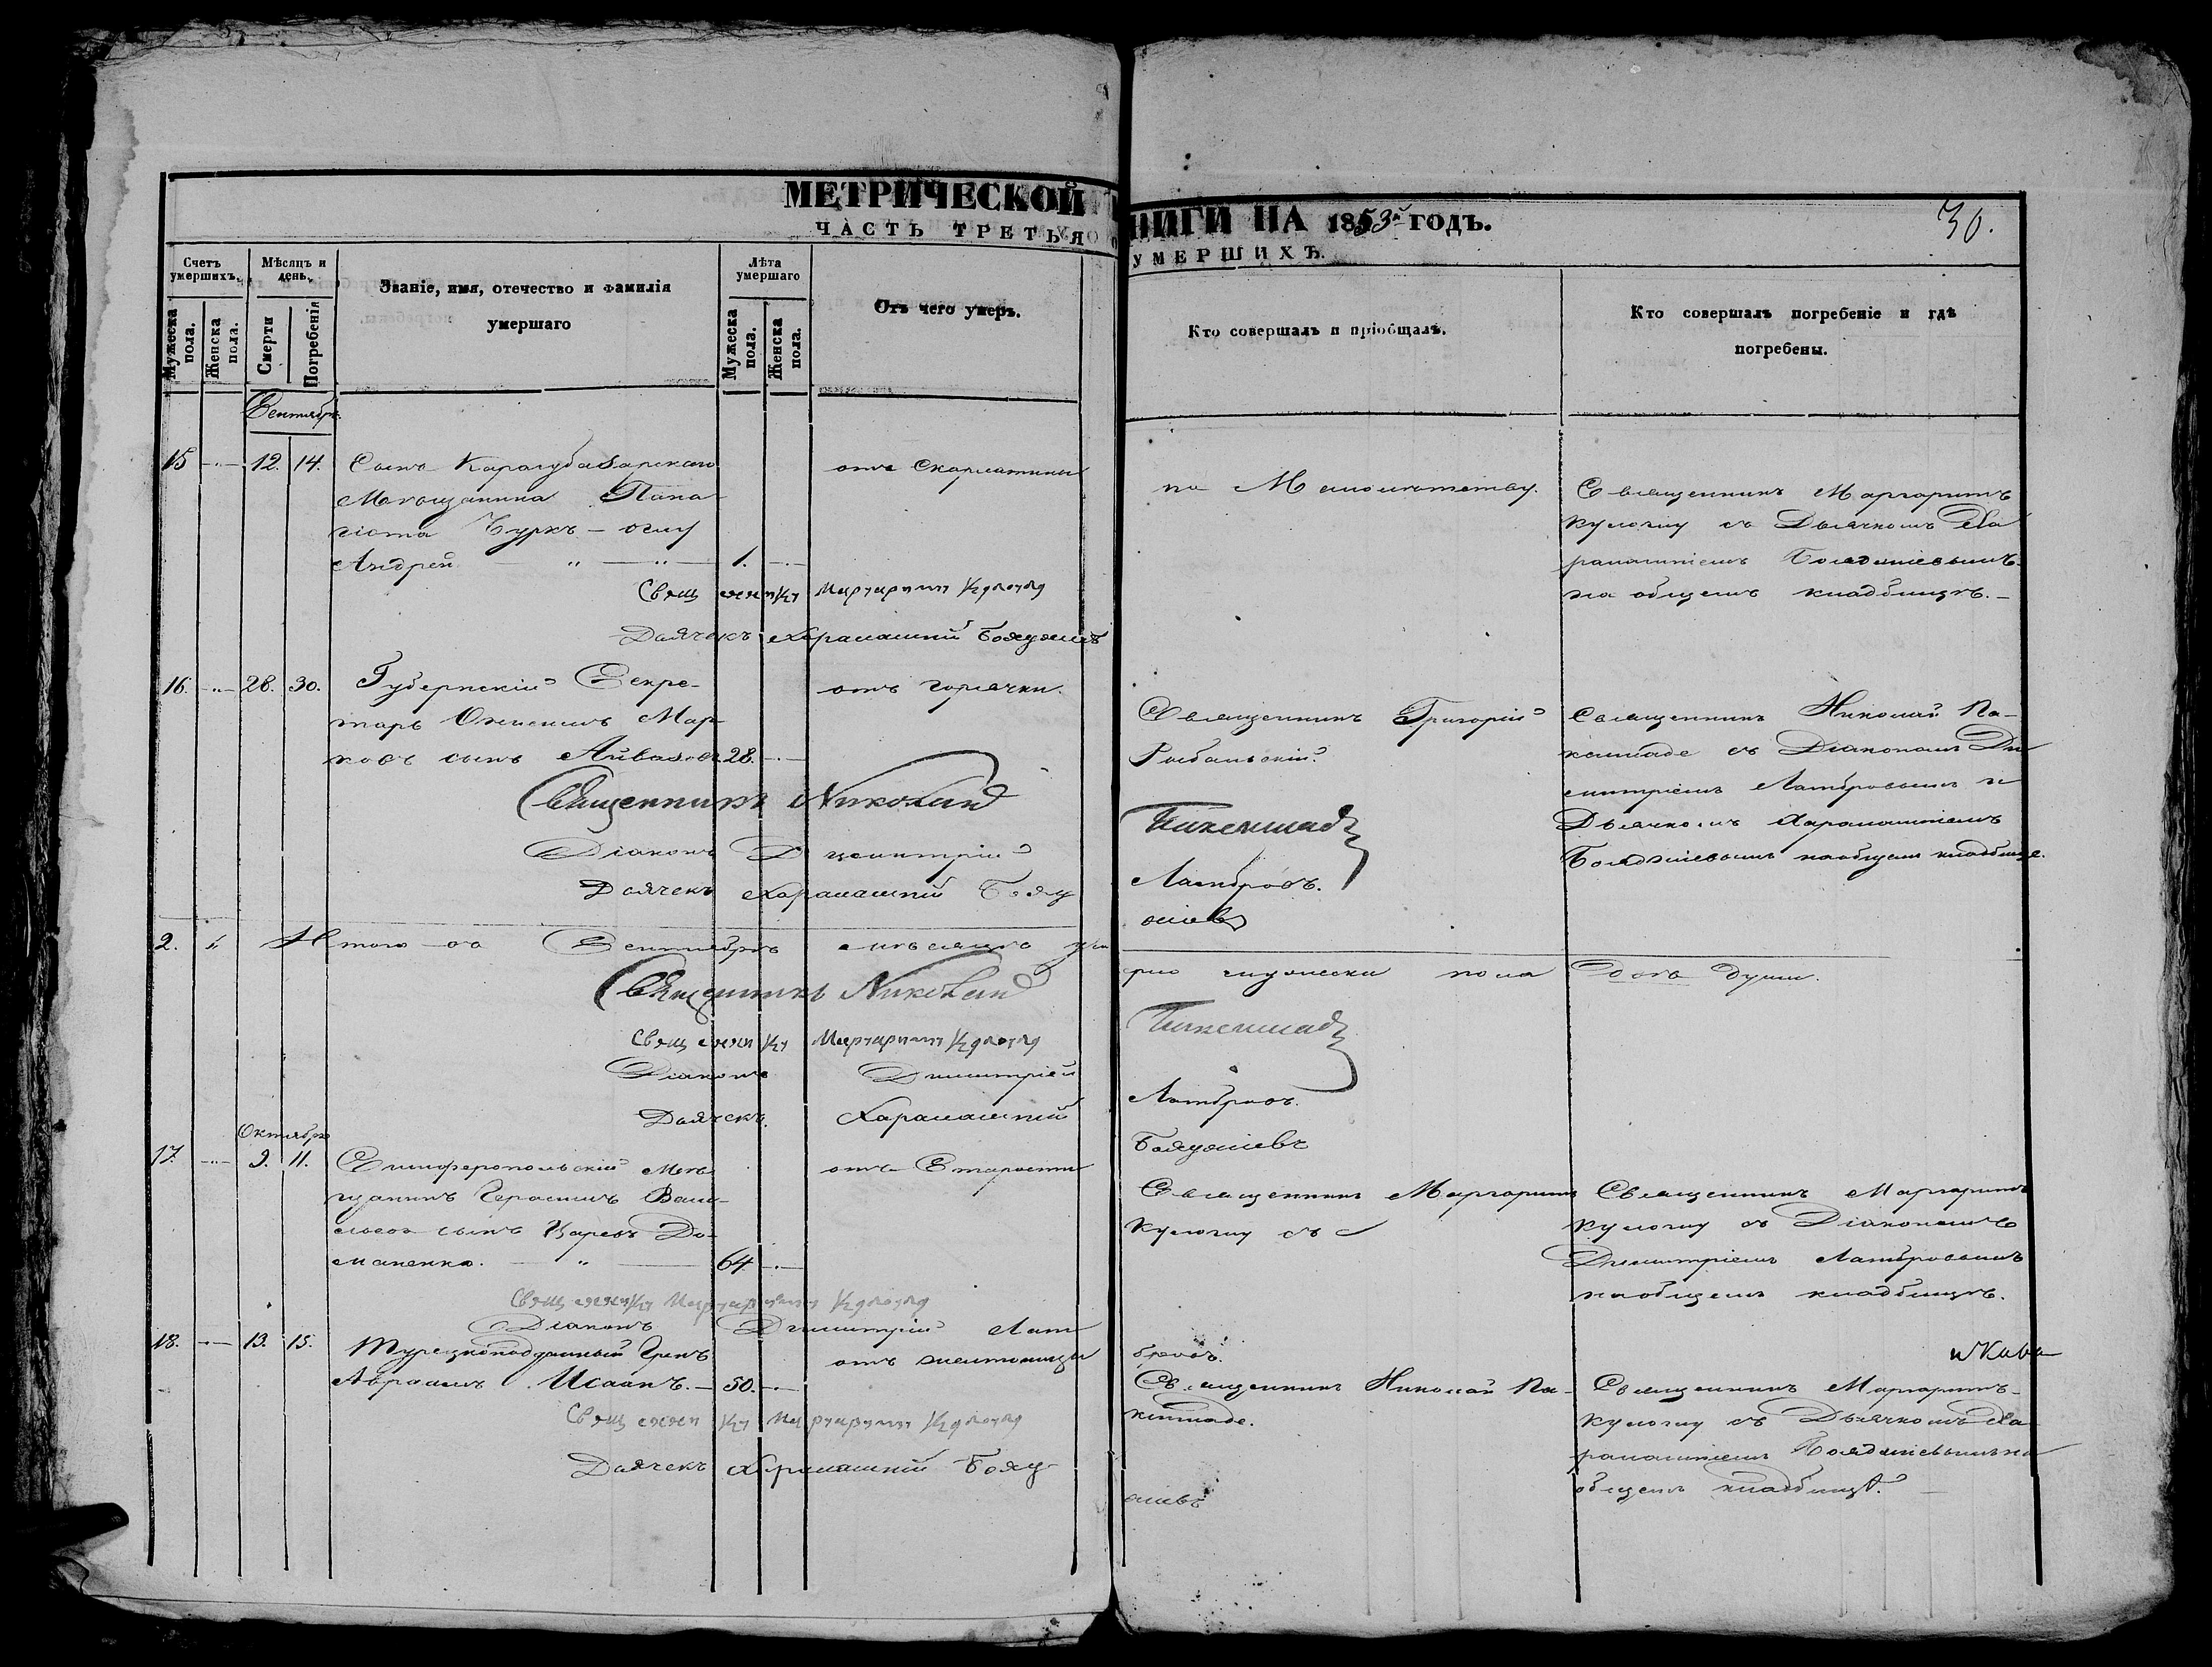 МЕТРИЧЕСКОЙ
НИГИ НА 1853й ГОДЪ.
30.
ЧАСТЬ ТРЕТЬЯ О
УМЕРШИХЪ.
Счетъ умершихъ.
Мужеска пола.
Женска пола.
Мѣсяцъ и день.
Смерти
Погребенія
Званіе, имя, отечество и фамилія
умершаго
Лѣта умершаго
Мужеска пола.
Женска пола.
Отъ чего умеръ.
Кто совершалъ и пріобщалъ.
Кто совершалъ погребеніе и гдѣ
погребены.
Сентябрь.
15 12. 14. Сынъ Карасубазарскаго
Мѣщанина Пана-
гіота Чуркъ-оглу
Андрей 1.
отъ Скарлатины
по Малолѣтству.
Священникъ Маргаритъ
Кулоглу съ Дьячкомъ Ха
ралампіемъ Бояджіевымъ
на общемъ кладбищѣ.
Священникъ Маргаритъ Кулоглу
Дьячекъ Харалампій Бояджіевъ
16. 28. 30. Губернскій Секре-
тарь Онисимъ Мар-
ковъ сынъ Айвазовъ 28.
отъ горячки.
Священникъ Григорій
Рыбальскій.
Священникъ Николай Па-
кептаде съ Діакономъ Ди
митріемъ Ламбровымъ и
Дьячкомъ Харалампіемъ
Бояджіевымъ на общемъ кладбище.
Священникъ Николай
Діаконъ Димитрій
Ламбровъ.
Дьячекъ Харалампій Бояд
жіевъ
2. Итого въ Сентябрѣ мѣсяцѣ уме
рло мужеска пола Двѣ души.
Священникъ Николай
Священникъ Маргаритъ Кулоглу
Діаконъ Димитрій
Ламбровъ.
Дьячекъ Харалампій
Бояджіевъ
Октябрь
17. 9. 11. Симферопольскій Мѣ-
щанинъ Герасимъ Васи-
льевъ сынъ Царевъ До-
маненко. 64
отъ Старости
Священникъ Маргаритъ
Кулоглу съ
Священникъ Маргаритъ
Кулоглу съ Діакономъ
Димитріемъ Ламбровымъ
на общемъ кладбищѣ.
Священникъ Маргаритъ Кулоглу
Діаконъ Димитрій Лам
бровъ.
18. 13. 15. Турецкоподданный Грекъ
Авраамъ Исаакъ. 50.
отъ желтоницы
Священникъ Николай Па-
Священникъ Маргаритъ
Кулоглу съ Дьячкомъ Ха
ралампіемъ Бояджіевымъ на
общемъ кладбищѣ.
Священникъ Маргаритъ Кулоглу
Дьячекъ Харалампій Бояд
жіевъ